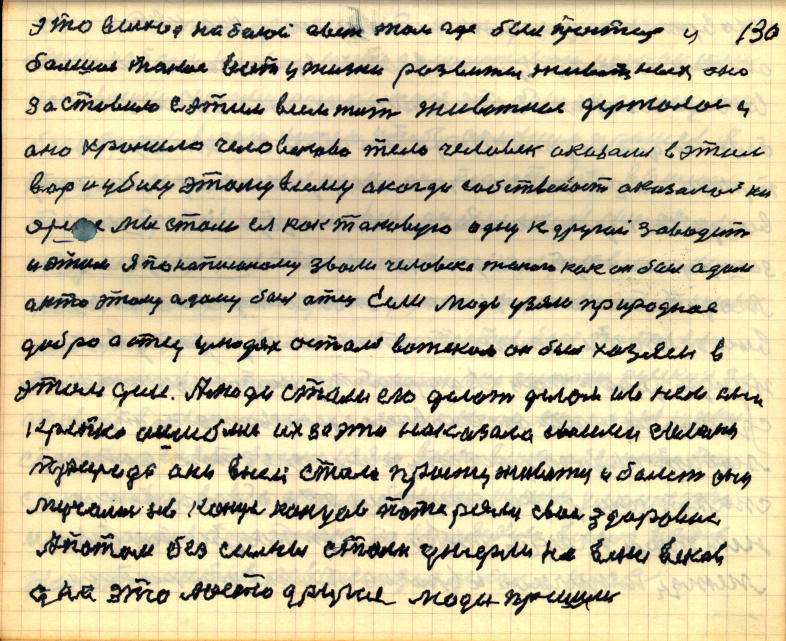 это вынод на белой свет том где был протцес и 130
болшое такое есть у жизни развитея животных оно
заставило этим всем тоть животное держалос и
оно хронило человеково тело человек оказался в этом
вор и убиец этому всему а когда собственост оказалос ки
мы стали ея как таковую одну к другой заводить
и этом я по написаному звали человека таког как он был адам
а кто этому адаму был отец Если люди узяли природное
добро а отец улюдях остался он был хозяен в
этом сын. А люди стали его делать делом ив нем они
крепко ошиблис их за это наказала своими силами
природа они в ней стали простужватца и болет они
мучалис ив конце концов потеряли свое здоровие
А потом без силны стали умерли на веки веков
а на это место другие люди пришли